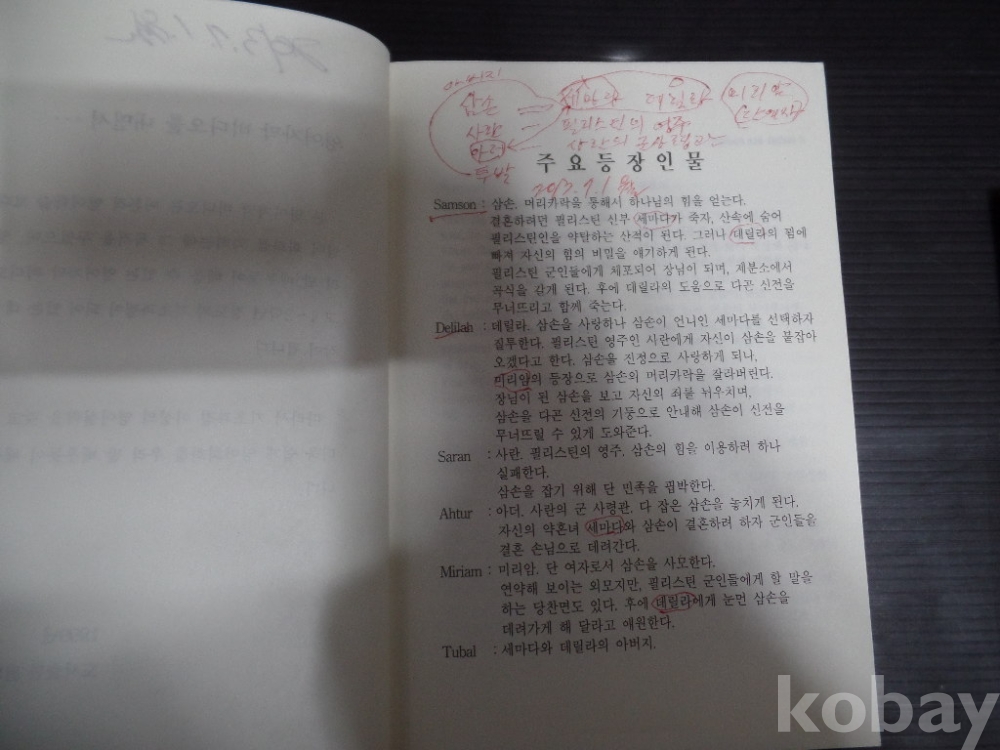 2013.7.1.월
아버지
삼손 세마다 데릴라 미리암
사란 필리스틴의 영주 (단 여자)
아더 사란의 군사령관
투발
주요등장인물
2013.7.1 월
Samson : 삼손, 머리카락을 통해서 하나님의 힘을 얻는다.
결혼하려던 필리스틴 신부 세마다가 죽자, 산속에 숨어
필리스틴인을 약탈하는 산적이 된다. 그러나 데릴라의 꾐에
빠져 자신의 힘의 비밀을 얘기하게 된다.
필리스틴 군인들에게 체포되어 장님이 되며, 제분소에서
곡식을 갈게 된다. 후에 데릴라의 도움으로 다곤 신전을
무너뜨리고 함께 죽는다.
Delilah : 데릴라. 삼손을 사랑하나 삼손이 언니인 세마다를 선택하자
질투한다. 필리스틴 영주인 사란에게 자신이 삼손을 붙잡아
오겠다고 한다. 삼손을 진정으로 사랑하게 되나,
미리암의 등장으로 삼손의 머리카락을 잘라버린다.
장님이 된 삼손을 보고 자신의 죄를 뉘우치며,
삼손을 다곤 신전의 기둥으로 안내해 삼손이 신전을
무너뜨릴 수 있게 도와준다.
Saran : 사란. 필리스틴의 영주. 삼손의 힘을 이용하려 하나
실패한다.
삼손을 잡기 위해 단 민족을 핍박한다.
Ahtur : 아더. 사란의 군 사령관. 다 잡은 삼손을 놓치게 된다.
자신의 약혼녀 세마다와 삼손이 결혼하려 하자 군인들을
결혼 손님으로 데려간다.
Miriam : 미리암. 단 여자로서 삼손을 사모한다.
연약해 보이는 외모지만, 필리스틴 군인들에게 할 말을
하는 당찬면도 있다. 후에 데릴라에게 눈먼 삼손을
데려가게 해 달라고 애원한다.
Tubal : 세마다와 데릴라의 아버지.
kobay